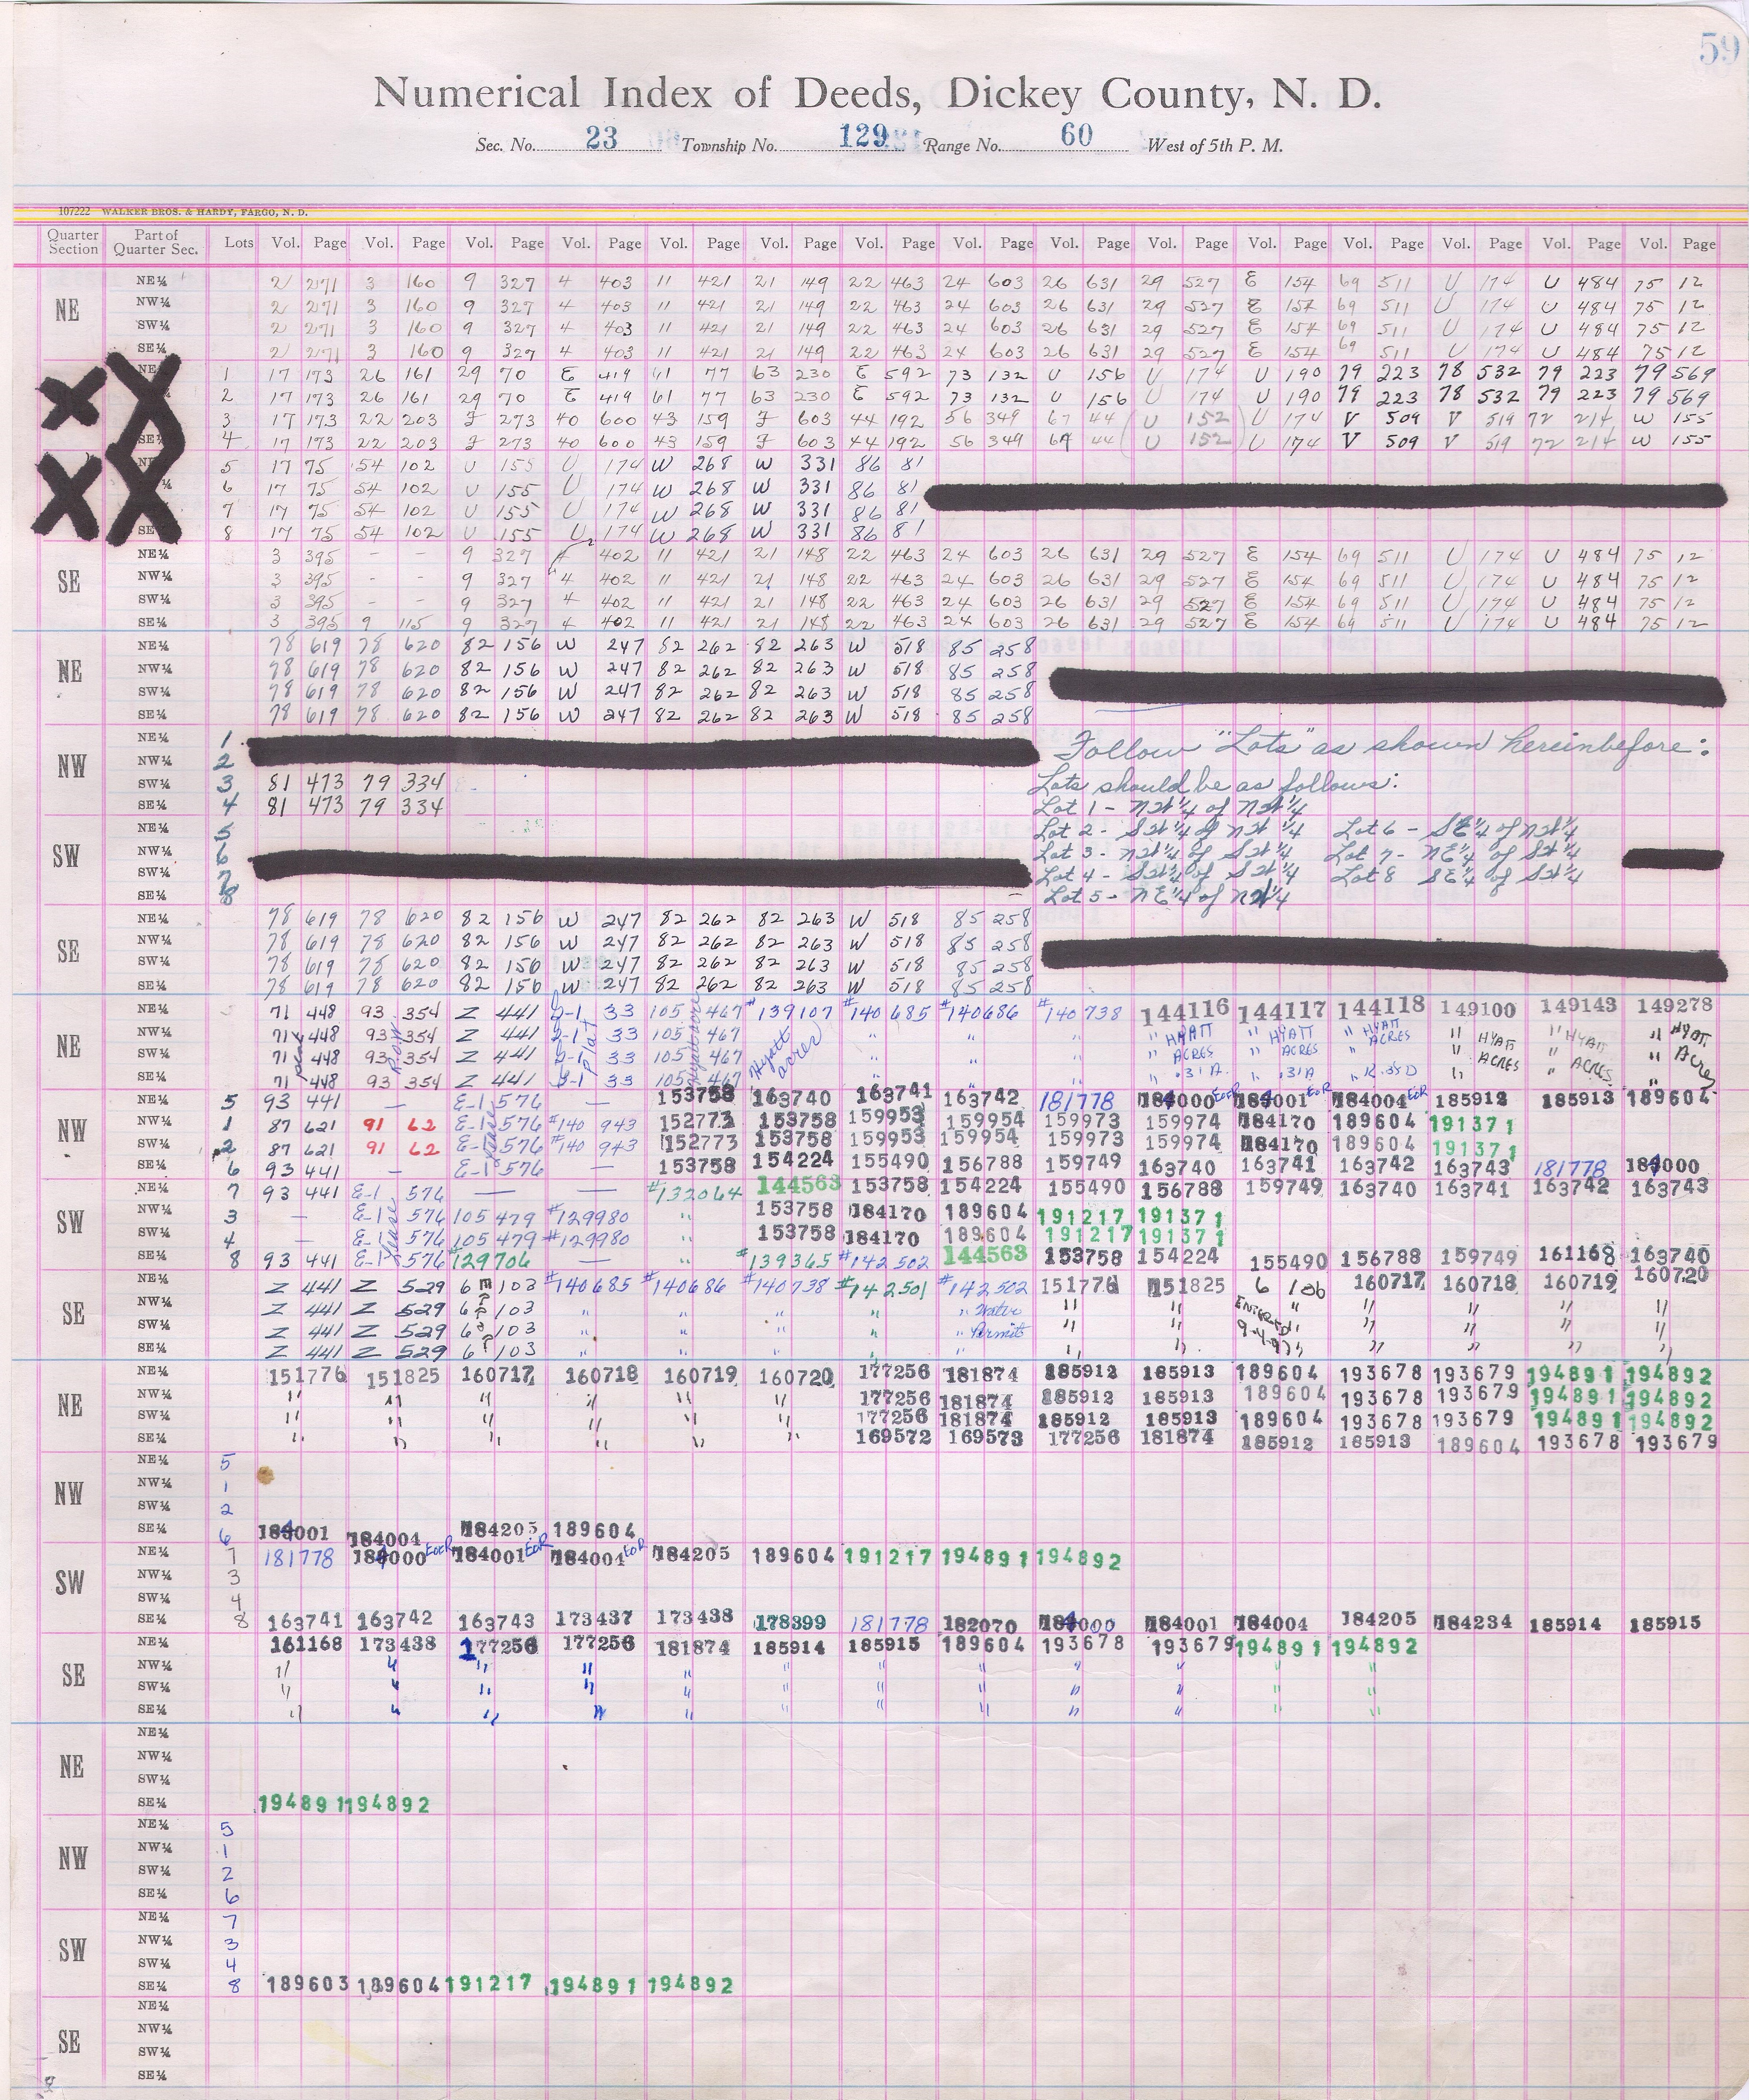 59
Numerical Index of Deeds, Dickey County, N. D.
Sec. No. 23 Township No. 129 Range No. 60 West of 5th P. M.
107222 WALKER BROS. & HARDY, FARGO, N. D.
Quarter Section Part of Quarter Sec. Lots Vol. Page Vol. Page Vol. Page Vol. Page Vol. Page Vol. Page Vol. Page Vol. Page Vol. Page Vol. Page Vol. Page Vol. Page Vol. Page Vol. Page Vol. Page
NE
NE¼ 2 271 3 160 9 327 4 403 11 421 21 149 22 463 24 603 26 631 29 527 E 154 69 511 U 174 U 484 75 12
NW¼ 2 271 3 160 9 327 4 403 11 421 21 149 22 463 24 603 26 631 29 527 E 154 69 511 U 174 U 484 75 12
SW¼ 2 271 3 160 9 327 4 403 11 421 21 149 22 463 24 603 26 631 29 527 E 154 69 511 U 174 U 484 75 12
SE¼ 2 271 3 160 9 327 4 403 11 421 21 149 22 463 24 603 26 631 29 527 E 154 69 511 U 174 U 484 75 12
1 17 173 26 161 29 70 E 419 61 77 63 230 E 592 73 132 U 156 U 174 U 190 79 223 78 532 79 223 79 569
2 17 173 26 161 29 70 E 419 61 77 63 230 E 592 73 132 U 156 U 174 U 190 79 223 78 532 79 223 79 569
3 17 173 22 203 J 273 40 600 43 159 J 603 44 192 56 349 67 44 (U 152) U 174 V 509 V 519 72 214 W 155
SE 4 17 173 22 203 J 273 40 600 43 159 J 603 44 192 56 349 69 44 (U 152) U 174 V 509 V 519 72 214 W 155
5 17 75 54 102 U 155 U 174 W 268 W 331 86 81
6 17 75 54 102 U 155 U 174 W 268 W 331 86 81
7 17 75 54 102 U 155 U 174 W 268 W 331 86 81
SE 8 17 75 54 102 U 155 U 174 W 268 W 331 86 81
SE
NE¼ 3 395 - - 9 327 4 402 11 421 21 148 22 463 24 603 26 631 29 527 E 154 69 511 U 174 U 484 75 12
NW¼ 3 395 - - 9 327 4 402 11 421 21 148 22 463 24 603 26 631 29 527 E 154 69 511 U 174 U 484 75 12
SW¼ 3 395 - - 9 327 4 402 11 421 21 148 22 463 24 603 26 631 29 527 E 154 69 511 U 174 U 484 75 12
SE¼ 3 395 9 115 9 327 4 402 11 421 21 148 22 463 24 603 26 631 29 527 E 154 69 511 U 174 U 484 75 12
NE
NE¼ 78 619 78 620 82 156 W 247 82 262 82 263 W 518 85 258
NW¼ 78 619 78 620 82 156 W 247 82 262 82 263 W 518 85 258
SW¼ 78 619 78 620 82 156 W 247 82 262 82 263 W 518 85 258
SE¼ 78 619 78 620 82 156 W 247 82 262 82 263 W 518 85 258
NW
NE¼ 1 Follow "Lots" as shown hereinbefore:
NW¼ 2
SW¼ 3 81 473 79 334 Lots should be as follows:
SE¼ 4 81 473 79 334 Lot 1 - NW¼ of NW¼
SW
NE¼ 5 Lot 2 - SW¼ of NW¼ Lot 6 - SE¼ of NW¼
NW¼ 6 Lot 3 - NW¼ of SW¼ Lot 7 - NE¼ of SW¼
SW¼ 7 Lot 4 - SW¼ of SW¼ Lot 8 SE¼ of SW¼
SE¼ 8 Lot 5 - NE¼ of NW¼
SE
NE¼ 78 619 78 620 82 156 W 247 82 262 82 263 W 518 85 258
NW¼ 78 619 78 620 82 156 W 247 82 262 82 263 W 518 85 258
SW¼ 78 619 78 620 82 156 W 247 82 262 82 263 W 518 85 258
SE¼ 78 619 78 620 82 156 W 247 82 262 82 263 W 518 85 258
NE
NE¼ 71 448 93 354 Z 441 J-1 33 105 467 #139107 #140685 #140686 #140738 144116 144117 144118 149100 149143 149278
NW¼ 71 448 93 354 Z 441 J-1 33 105 467 " " " " HYATT " HYATT " HYATT " HYATT " HYATT " HYATT
SW¼ 71 448 93 354 Z 441 J-1 33 105 467 " " " " ACRES " ACRES " ACRES " ACRES " ACRES " Acres
SE¼ 71 448 93 354 Z 441 J-1 33 105 467 Hyatt acres " " " " 31A " 31A " " " "
NW
NE¼ 5 93 441 — E-1 576 153758 163740 163741 163742 181778 184000 EoR 184001 EoR 184004 EoR 185912 185913 189604
NW¼ 1 87 621 91 62 E-1 576 #140 943 152773 153758 159953 159954 159973 159974 184170 189604 191371
SW¼ 2 87 621 91 62 E-1 576 #140 943 152773 153758 159953 159954 159973 159974 184170 189604 191371
SE¼ 6 93 441 — E-1 576 — 153758 154224 155490 156788 159749 163740 163741 163742 163743 181778 184000
SW
NE¼ 7 93 441 E-1 576 — — #132064 144563 153758 154224 155490 156788 159749 163740 163741 163742 163743
NW¼ 3 — E-1 576 105 479 #129980 " 153758 184170 189604 191217 191371
SW¼ 4 — E-1 576 105 479 #129980 " 153758 184170 189604 191217 191371
SE¼ 8 93 441 E-1 576 #129706 — " #139365 #142502 144563 153758 154224 155490 156788 159749 161168 163740
SE
NE¼ Z 441 Z 529 6 103 #140685 #140686 #140738 #142501 #142502 151776 151825 6 106 160717 160718 160719 160720
NW¼ Z 441 Z 529 6 103 " " " " " Water " " ENTERED " " " " "
SW¼ Z 441 Z 529 6 103 " " " " " Permit " " " " " " "
SE¼ Z 441 Z 529 6 103 " " " " " " " " " " "
NE
NE¼ 151776 151825 160717 160718 160719 160720 177256 181874 185912 185913 189604 193678 193679 194891 194892
NW¼ " " " " " " 177256 181874 185912 185913 189604 193678 193679 194891 194892
SW¼ " " " " " " 177256 181874 185912 185913 189604 193678 193679 194891 194892
SE¼ " " " " " " 169572 169573 177256 181874 185912 185913 189604 193678 193679
NW
NE¼ 5
NW¼ 1
SW¼ 2
SE¼ 6 184001 184004 184205 189604
SW
NE¼ 7 181778 184000 EoR 184001 EoR 184004 EoR 184205 189604 191217 194891 194892
NW¼ 3
SW¼ 4
SE¼ 8 163741 163742 163743 173437 173438 178399 181778 182070 184000 184001 184004 184205 184234 185914 185915
SE
NE¼ 161168 173438 177256 177256 181874 185914 185915 189604 193678 193679 194891 194892
NW¼ " " " " " " " " " " " "
SW¼ " " " " " " " " " " " "
SE¼ " " " " " " " " " " " "
NE
NE¼
NW¼
SW¼
SE¼ 194891 194892
NW
NE¼ 5
NW¼ 1
SW¼ 2
SE¼ 6
SW
NE¼ 7
NW¼ 3
SW¼ 4
SE¼ 8 189603 189604 191217 194891 194892
SE
NE¼
NW¼
SW¼
SE¼